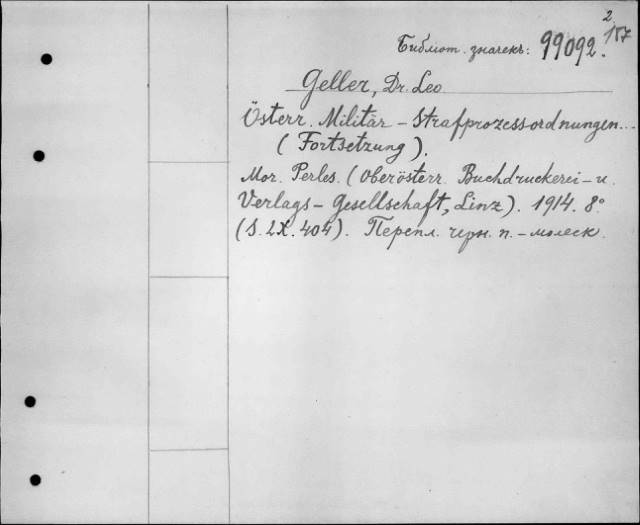 2
157
Библіот. значекъ: 99092.
Geller, Dr. Leo
Österr. Militär-Strafprozessordnungen...
(Fortsetzung).
Mor. Perles. (Oberösterr. Buchdruckerei- u.
Verlags-Gesellschaft, Linz). 1914. 8°
(S. LX. 404). Перепл. черн. п.-молеск.